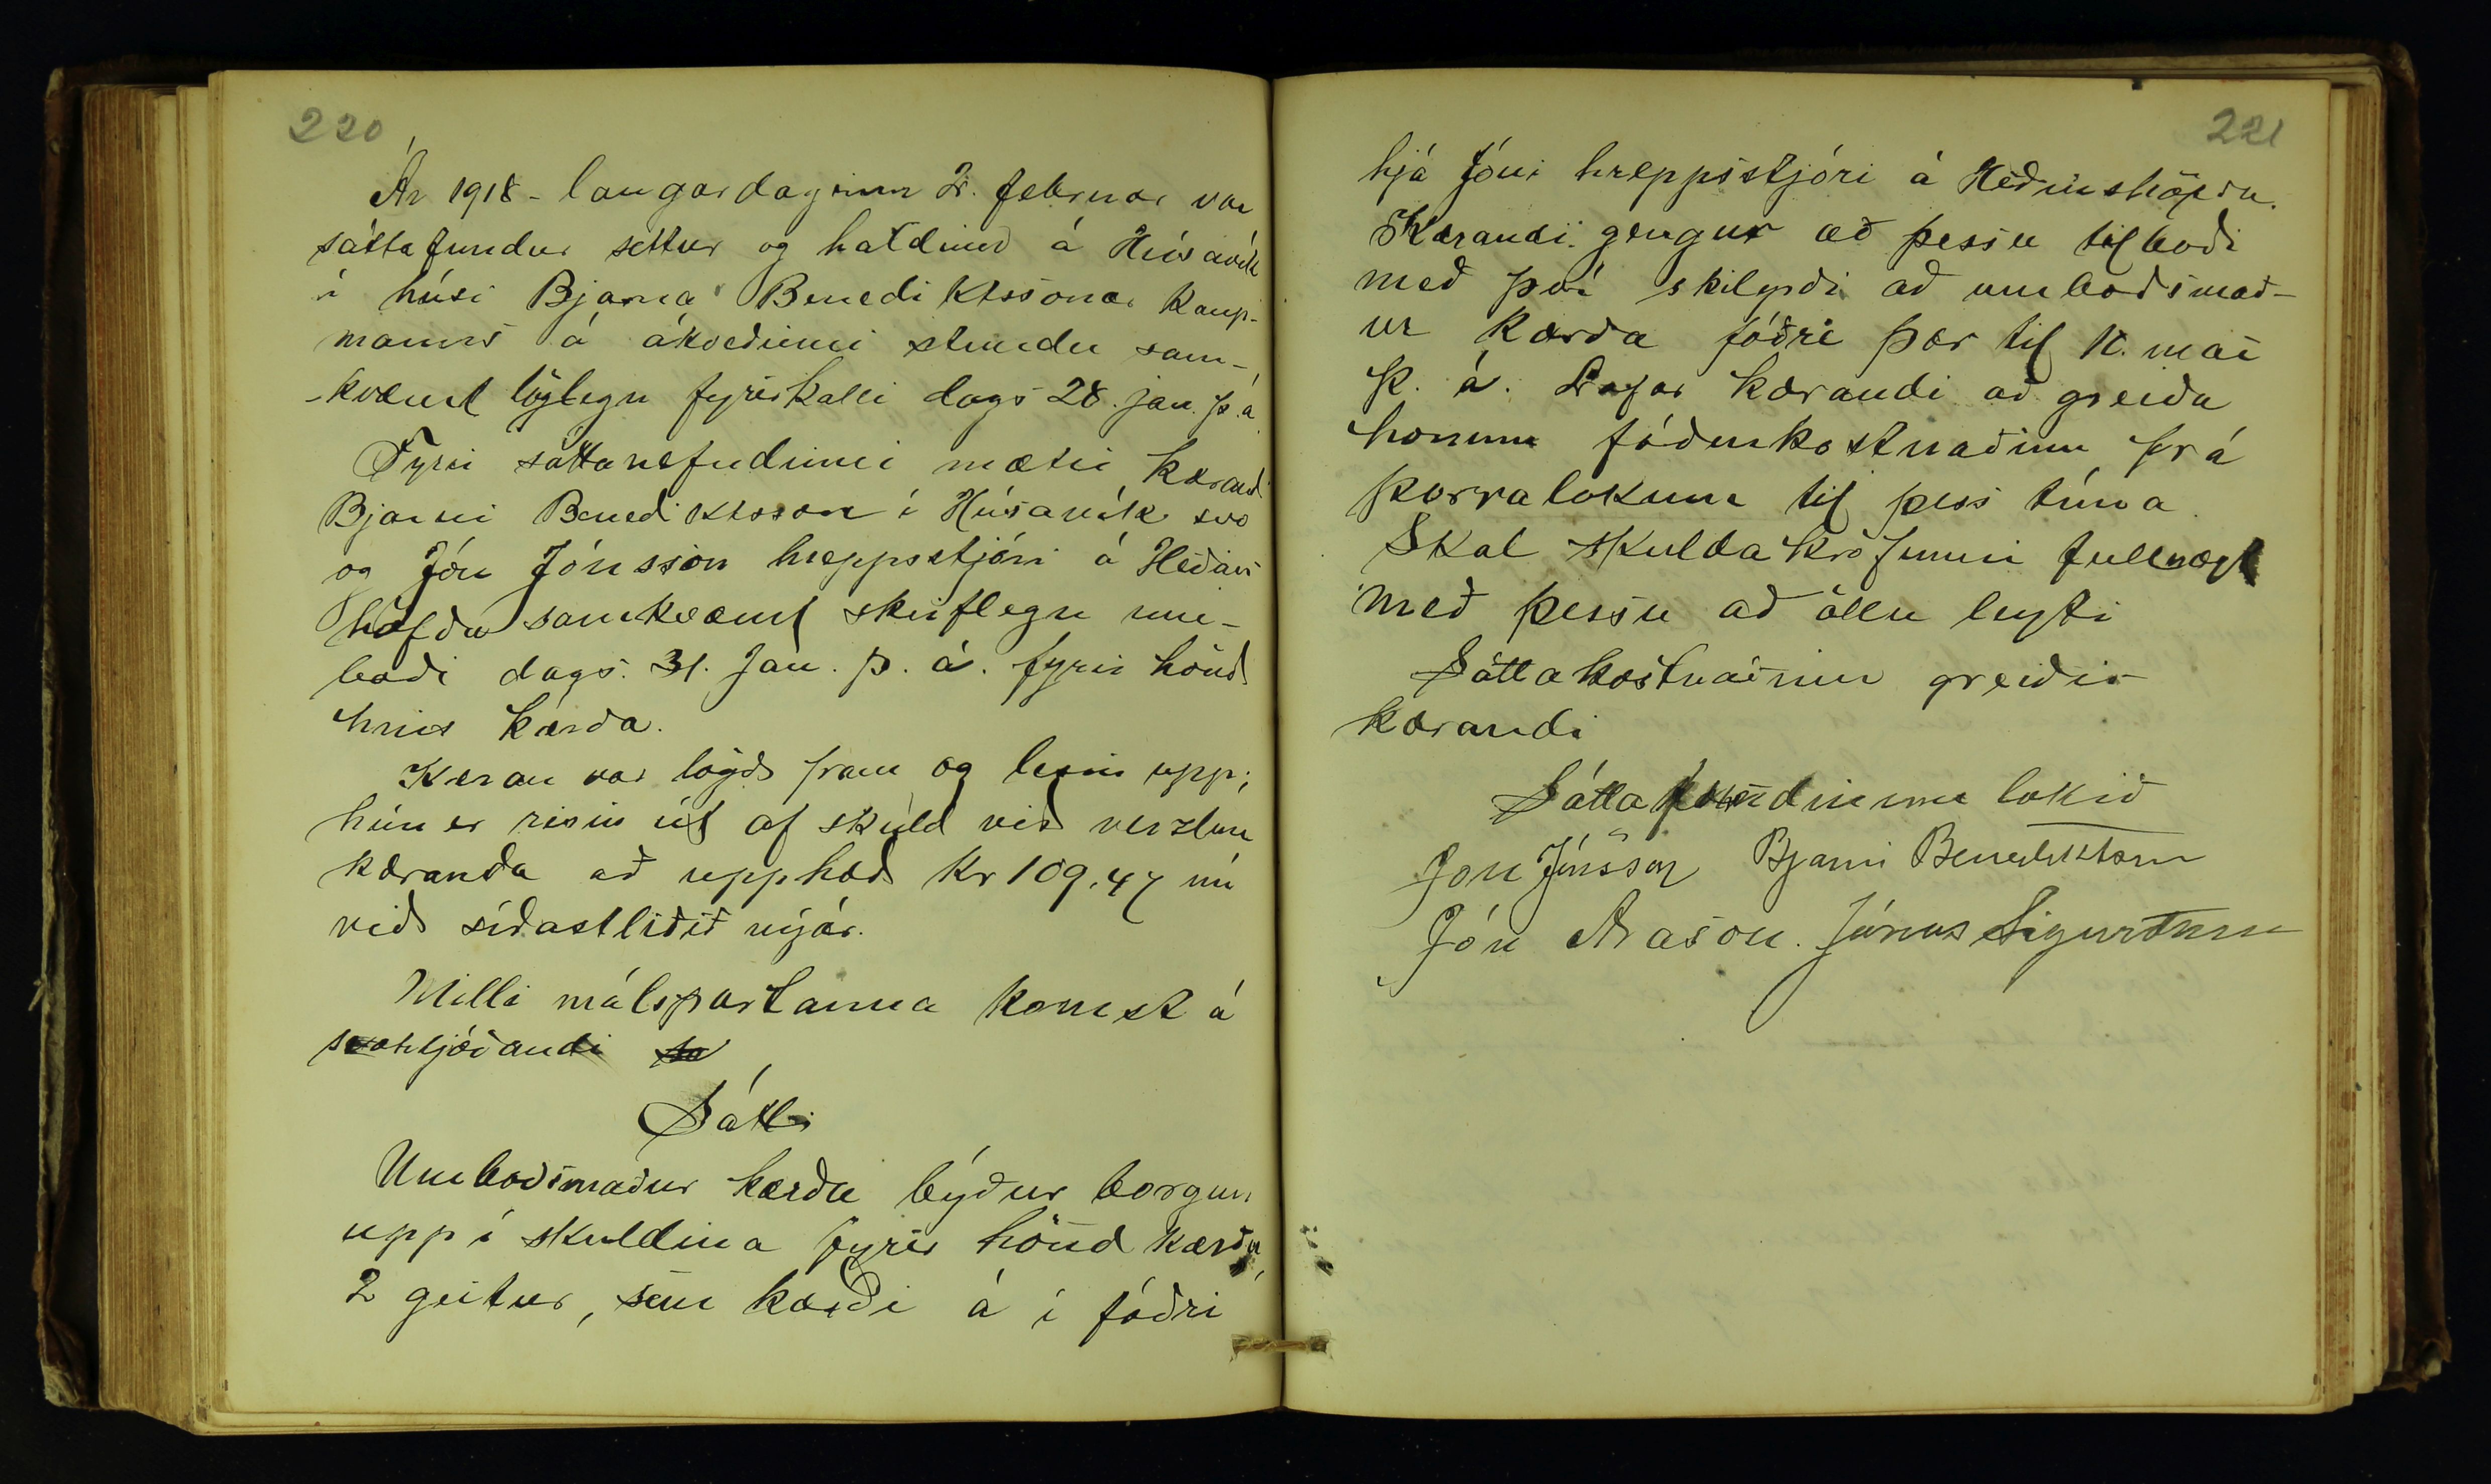 220
Ár 1918 - laugardaginn 2. februar var
sáttafundur settur og haldinn á Húsavík
í húsi Bjarna Benediktssonar kaup-
manns á ákveðinni stundu sam-
-kvæmt löglegu fyrirkalli dags 28. jan. þ. á.
Fyrir sáttanefndinni mætir kærandi
Bjarni Benediktsson í Húsavík svo
og Jón Jónsson hreppstjóri á Héðins
höfða samkvæmt skriflegu um-
boði dags. 31. Jan. þ. á. fyrir hönd
hins kærða.
Kæran var lögð fram og lesin upp;
hún er risin út af skuld við verzlun
kæranda að upphæð kr 109.47 nú
við síðastliðið nýár.
Milli málspartanna komst á
svohljóðandi
Sátt:
Umboðsmaður kærða býður borgun
upp í skuldina fyrir hönd kærða,
2 geitur, sem kærði á í fóðri
221
hjá Jóni hreppsstjóri á Héðinshöfða.
Kærandi gengur að þessu tilboði
með því skilyrði að umboðsmað-
ur kærða fóðri þær til 10. mai
þ. á. Lofar kærandi að greiða
honum fóðurkostnaðinn frá
þorralokum til þess tíma.
Skal skuldakröfunni fullnægt
með þessu að öllu leyti
Sáttakostnaðinn greiðir
kærandi
Sáttafundinum lokið
Jón Jónsson Bjarni Benediktsson
Jón Arason. Jónas Sigurðsson